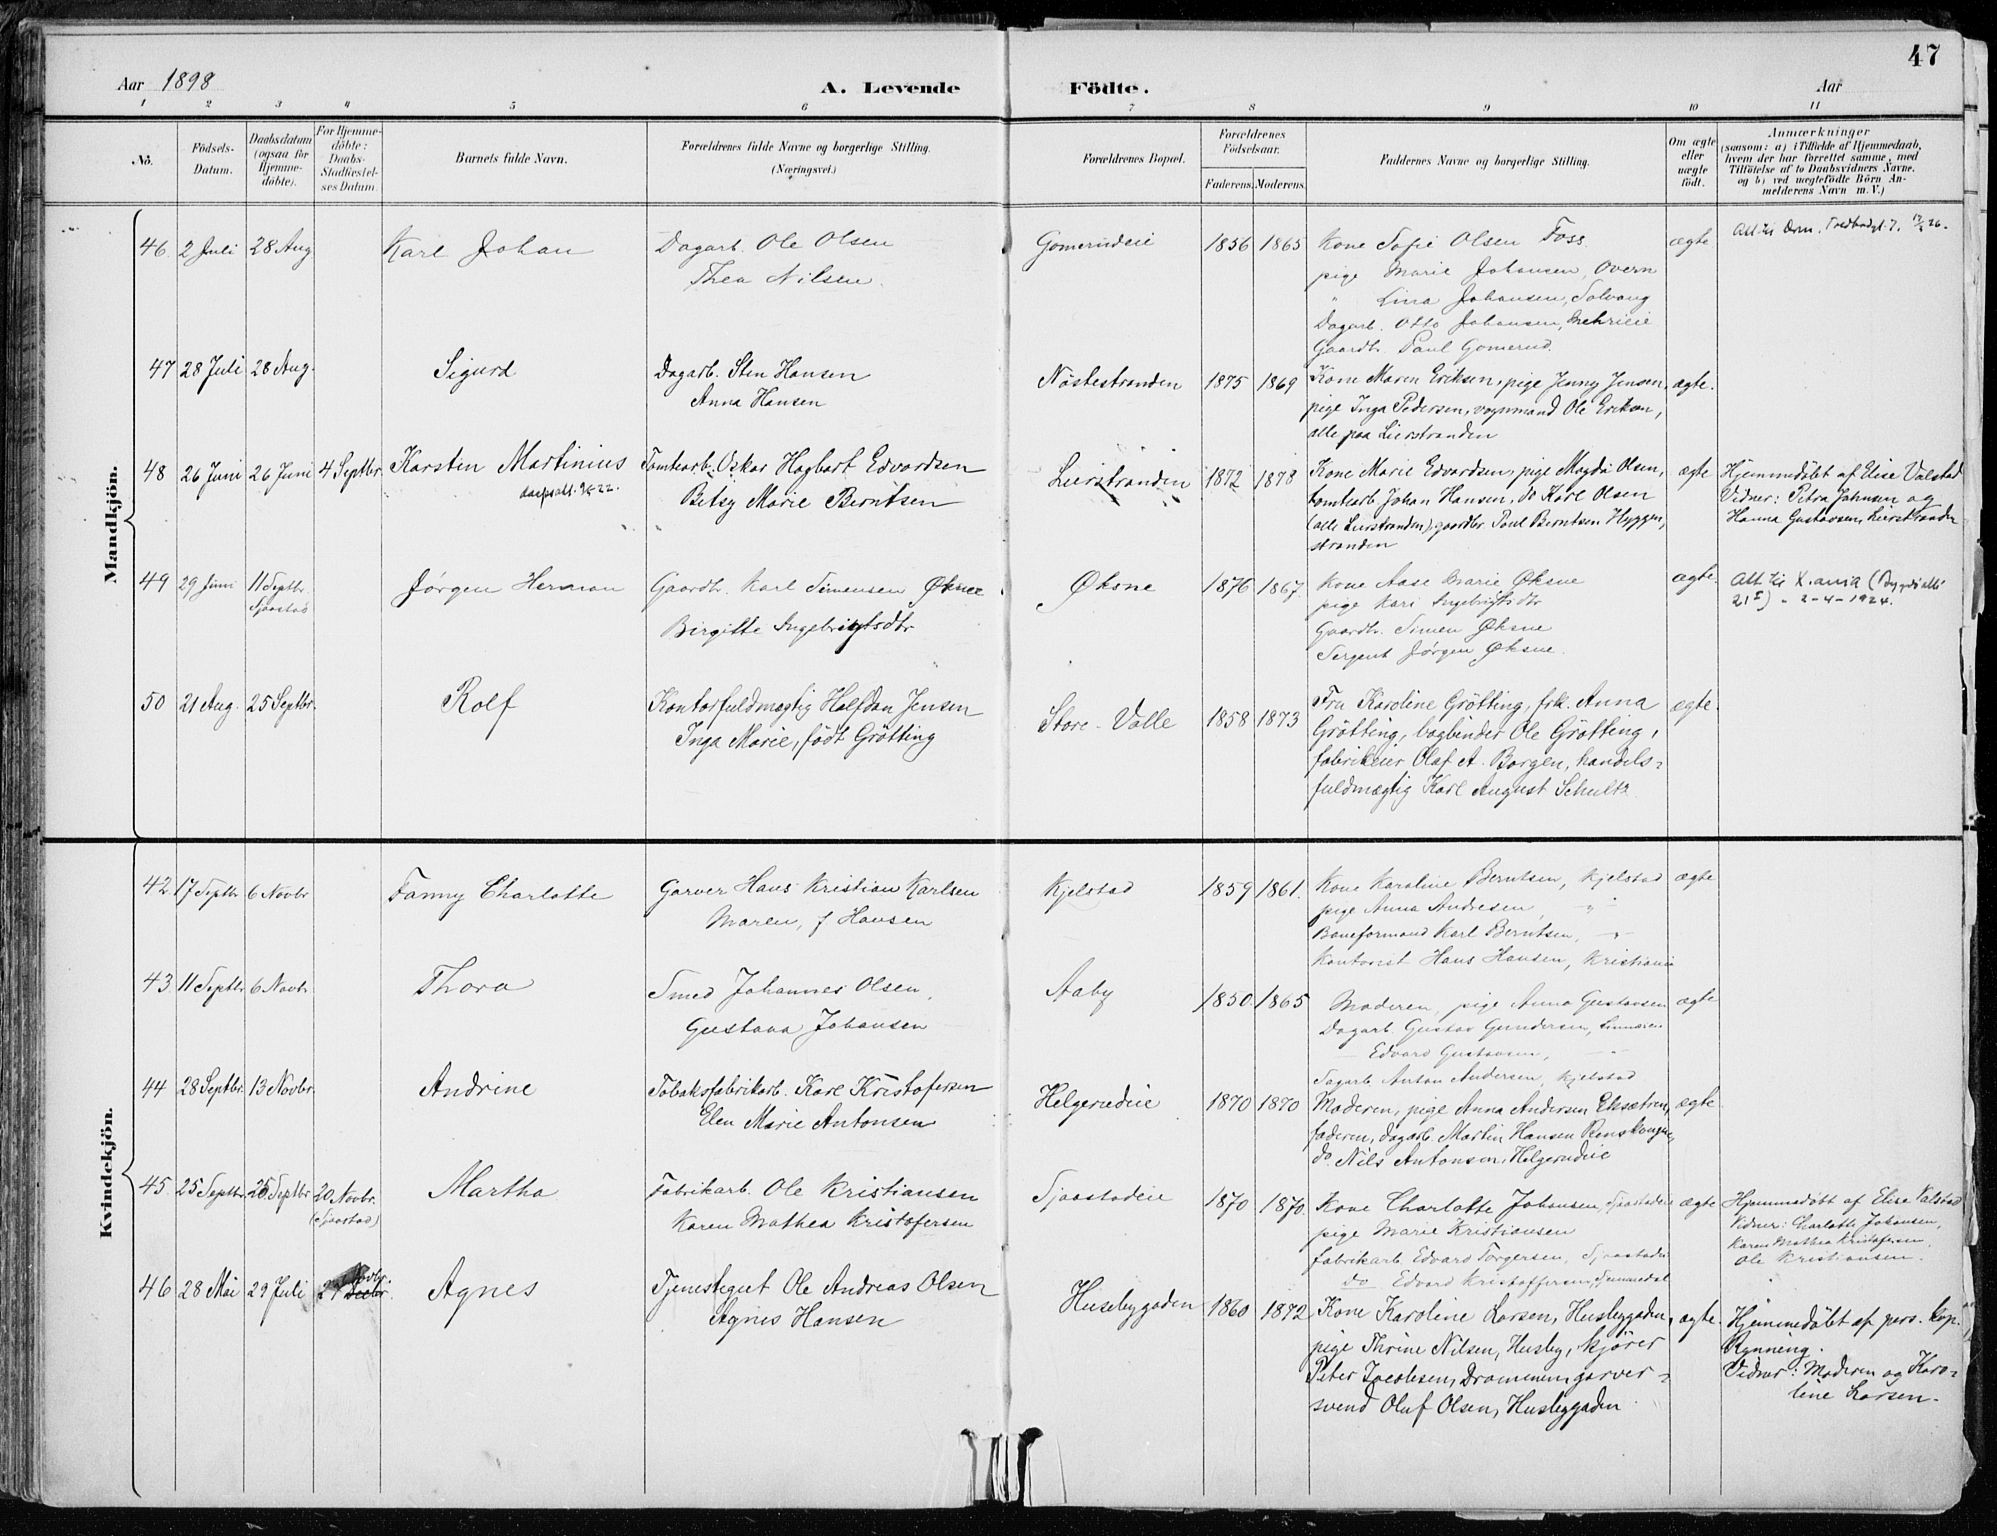 47
Aar 1898 A. Levende Födte. Aar
1 2 3 4 5 6 7 8 9 10 11
No. Födsels-Datum. Daabsdatum (ogsaa for Hjemme-döbte). For Hjemme-döbte: Daabs-Stadfæstel-ses Datum. Barnets fulde Navn. Forældrenes fulde Navne og borgerlige Stilling. (Næringsvei.) Forældrenes Bopæl. Forældrenes Födselsaar. Faderens. Moderens. Faddernes Navne og borgerlige Stilling. Om ægte eller uægte födt. Anmærkninger (saasom: a) i Tilfælde af Hjemmedaab, hvem der har forrettet samme, med Tilföielse af to Daabsvidners Navne, og b) ved uægtefödte Börn An-melderens Navn m. V.)
Mandkjön.
46. 2 Juli 28 Aug Karl Johan Dagarb. Ole Olsen Gomerudeie 1856 1865 Kone Sofie Olsen Foss. ægte
Thea Nilsen. pige Marie Johansen, Overn
" Lina Johansen, Solvang
Dagarb. Otto Johansen,
Gaardbr. Paul Gomerud.
47 28 Juli 28 Aug. Sigurd Dagarb. Sten Hansen Nöstestranden 1875 1869 Kone Maren Eriksen, pige Jenny Jensen, ægte.
Anna Hansen pige Inga Pedersen, vognmand Ole Eriksen,
alle paa Lierstranden
48 26 Juni 26 Juni 4 Septbr. Karsten Martinius Tomtearb. Oskar Hagbart Edvardsen Lierstranden 1872 1878 Kone Marie Edvardsen, pige Magda Olsen, ægte Hjemmedøbt af Elise Valstad
Betsy Marie Berntsen tomtearb. Johan Hansen, do Karl Olsen Vidner: Petra Johnsen og
(alle Lierstranden), gaardbr. Paul Berntsen Hyggen, Hanna Gustavsen, Lierstranden
stranden
49 29 Juni 11 Septbr. Jørgen Herman Gaardbr. Karl Simensen Øksne Øksne 1876 1867. Kone Aase Marie Øksne ægte. Att. til X.ania (Bygdø allé
Sjaastad Birgitte Ingebrigtsdtr pige Kari Ingebrigtsdtr 21 I) - 2-4-1924.
Gaardbr. Simen Øksne
Sergent Jørgen Øksne.
50 21 Aug. 25 Septbr. Rolf Kontorfuldmægtig Halfdan Jensen Store-Valle 1858 1873 Fru Karoline Grötting, frk. Anna ægte.
Inga Marie, født Grötting Grötting, bogbinder Ole Grötting,
fabrikeier Olaf A. Borgen, handels-
fuldmægtig Karl August Schultz.
Kvindekjön.
42. 17 Septbr 6 Novbr Fanny Charlotte Garver Hans Kristian Karlsen Kjelstad 1859 1861. Kone Karoline Berntsen, Kjelstad ægte
Maren, f. Hansen pige Anna Andresen, "
Baneformand Karl Berntsen, "
Kontorist Hans Hansen, Kristiania
43 11 Septbr 6 Novbr. Thora Smed Johannes Olsen, Aaby 1850. 1865 Moderen, pige Anna Gustavsen ægte
Gustava Johansen Dagarb. Gustav Gundersen,
— Edvard Gustavsen, —
Dagarb. Anton Andersen, Kjelstad
44 28 Septbr. 13 Novbr. Andrine Tobaksfabrikarb. Karl Kristofersen Helgerudeie 1870 1870 Moderen, pige Anna Andersen Eksætren, ægte
Elen Marie Antonsen faderen, dagarb. Martin Hansen Renskougen,
do. Nils Antonsen, Helgerudeie
45. 25 Septbr. 25 Septbr 20 Novbr. Martha Fabrikarb. Ole Kristiansen Sjaastadeie 1870 1870. Kone Charlotte Johansen, Sjaastadeie ægte Hjemmedøbt af Elise Valstad
(Sjaastad) Karen Mathea Kristofersen pige Marie Kristiansen Vidner: Charlotte Johansen,
fabrikarb. Edvard Torgersen, Sjaastadeie Karen Mathea Kristofersen,
do Edvard Kristoffersen, Ole Kristiansen.
46 28 Mai 29 Juli 27 Novbr. Agnes Tjenestegut Ole Andreas Olsen Husebygaden 1860 1872 Kone Karoline Larsen, Husebygaden, ægte. Hjemmedøbt af pers. kap.
Agnes Hansen pige Thrine Nilsen, Husby, kjører Rynning.
Peter Jacobsen, Drammen, garver- Vidner: Moderen og Karo-
svend Oluf Olsen, Husebygaden. line Larsen.